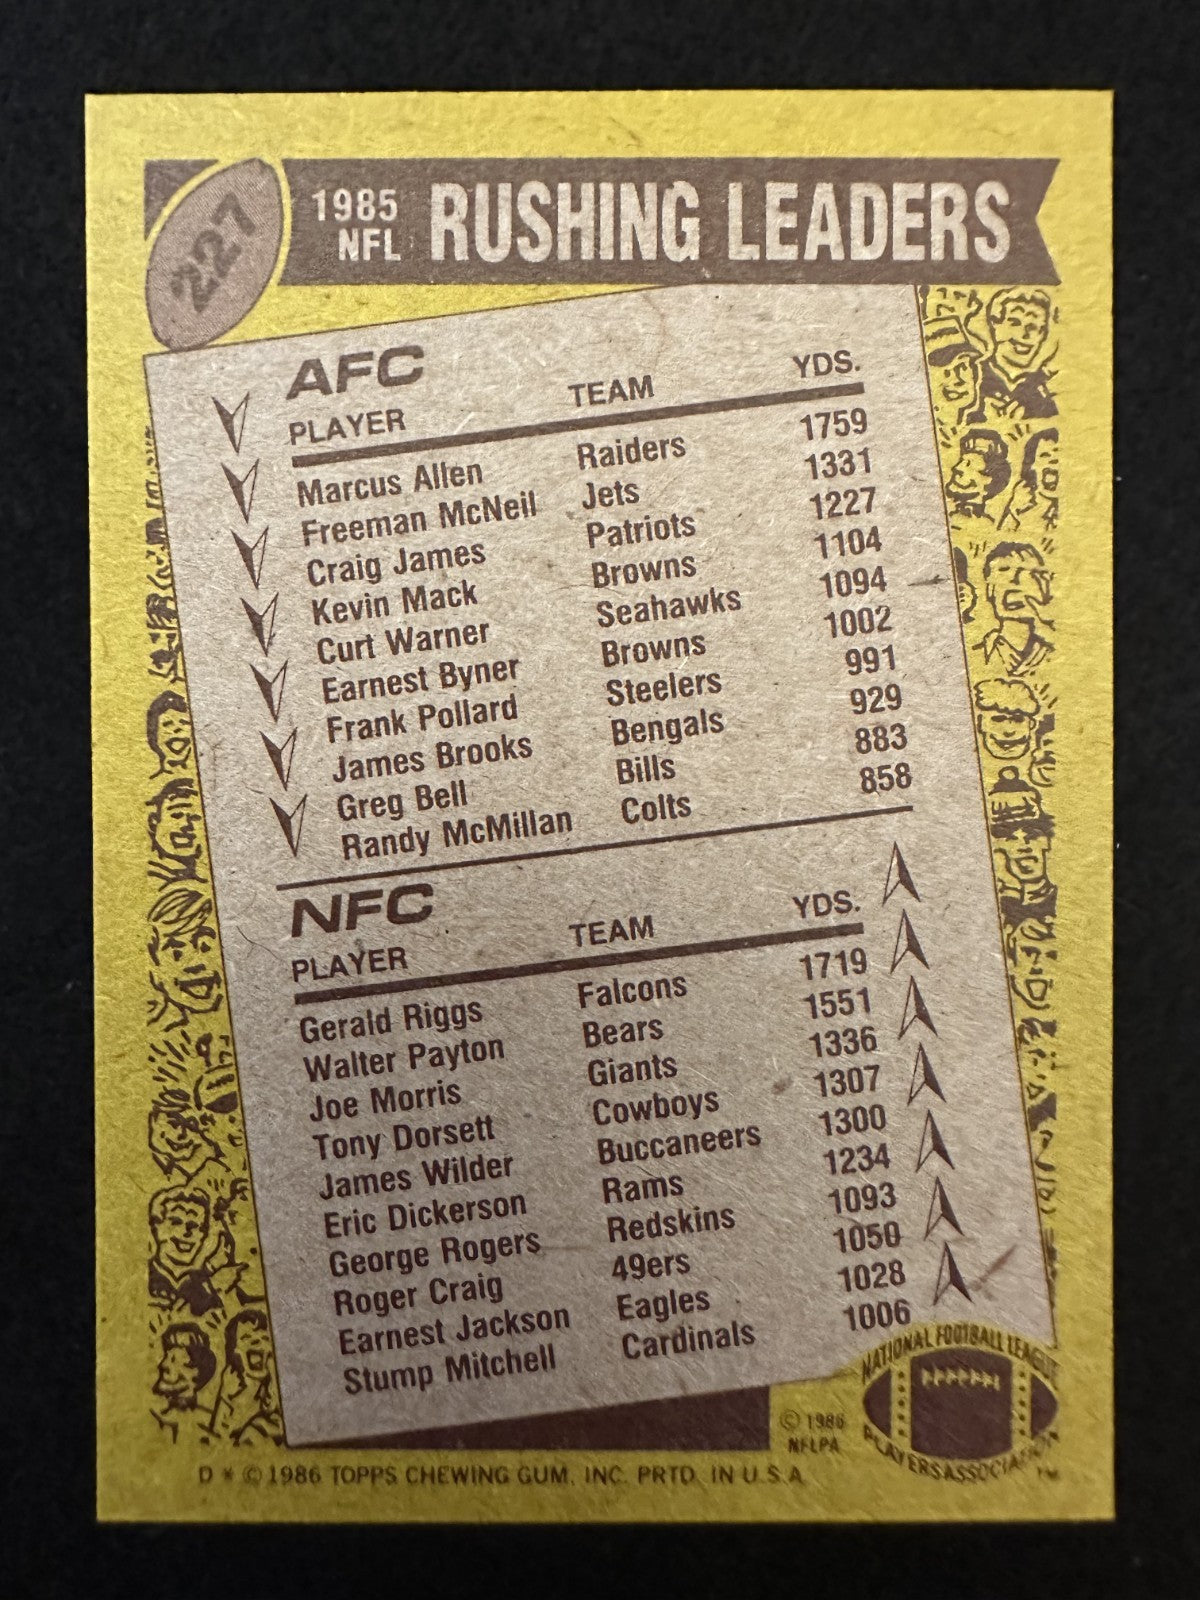 227
1985 NFL RUSHING LEADERS
AFC
PLAYER TEAM YDS.
Marcus Allen Raiders 1759
Freeman McNeil Jets 1331
Craig James Patriots 1227
Kevin Mack Browns 1104
Curt Warner Seahawks 1094
Earnest Byner Browns 1002
Frank Pollard Steelers 991
James Brooks Bengals 929
Greg Bell Bills 883
Randy McMillan Colts 858
NFC
PLAYER TEAM YDS.
Gerald Riggs Falcons 1719
Walter Payton Bears 1551
Joe Morris Giants 1336
Tony Dorsett Cowboys 1307
James Wilder Buccaneers 1300
Eric Dickerson Rams 1234
George Rogers Redskins 1093
Roger Craig 49ers 1050
Earnest Jackson Eagles 1028
Stump Mitchell Cardinals 1006
NATIONAL FOOTBALL LEAGUE
PLAYERS ASSOCIATION
© 1986
NFLPA
D * © 1986 TOPPS CHEWING GUM, INC. PRTD. IN U.S.A.